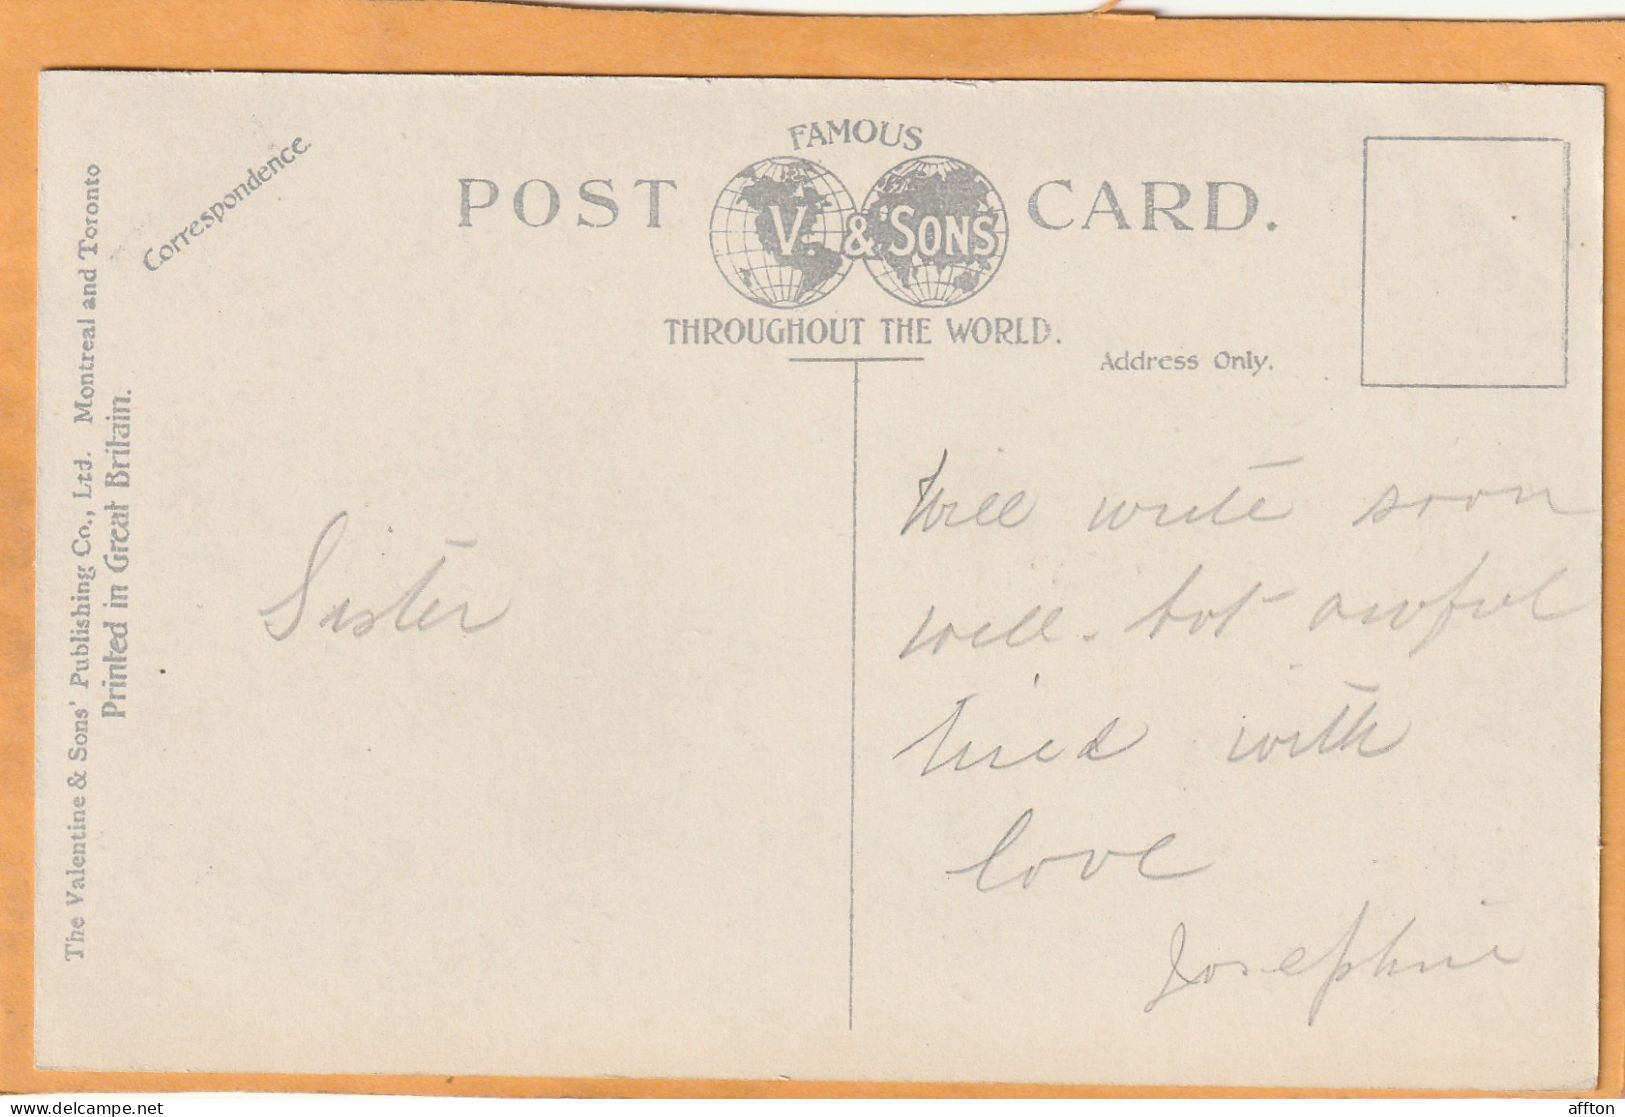 The Valentine & Sons' Publishing Co., Ltd. Montreal and Toronto
Printed in Great Britain.
Correspondence.
FAMOUS
POST CARD.
V. & SONS
THROUGHOUT THE WORLD.
Address Only.
Sister
Will write soon
well. but awful
tired with
love
Josephine
delcampe.net
affton